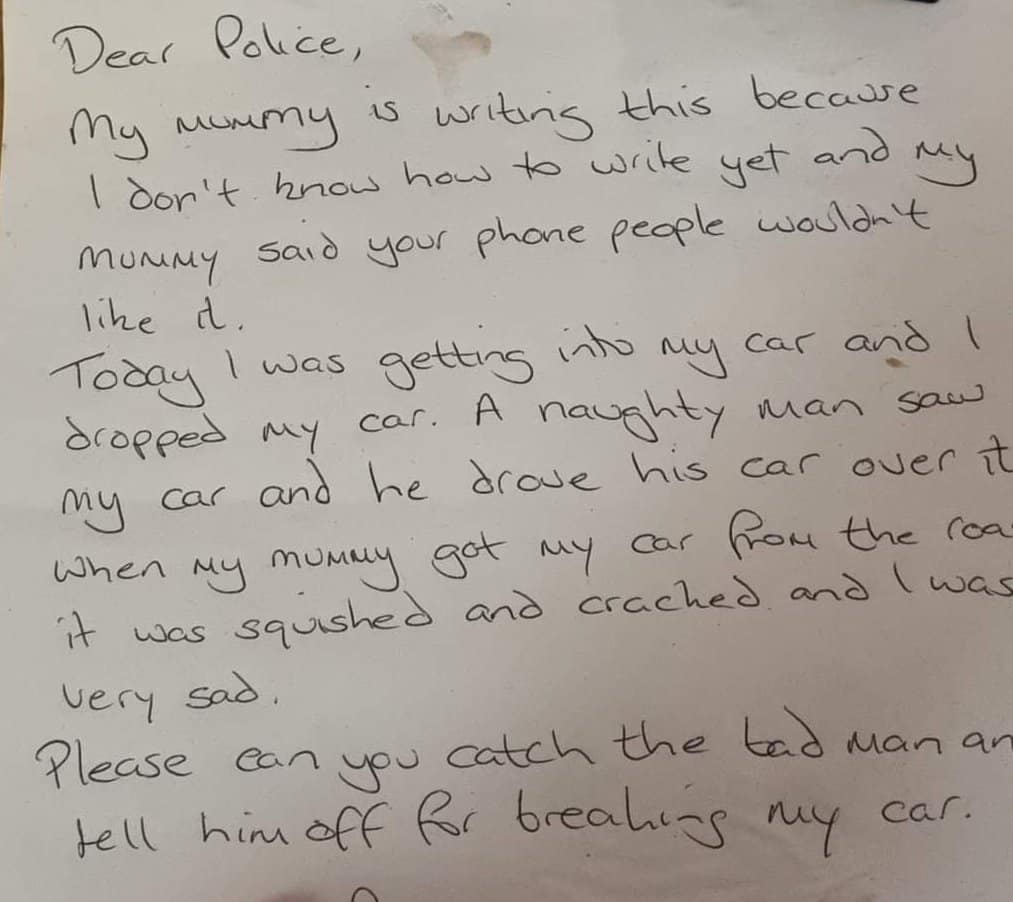 Dear Police,
My mummy is writing this because
I don't know how to write yet and my
mummy said your phone people wouldn't
like it.
Today I was getting into my car and I
dropped my car. A naughty man saw
my car and he drove his car over it
When my mummy got my car from the roa
it was squished and cracked and I was
very sad.
Please can you catch the bad man an
tell him off for breaking my car.